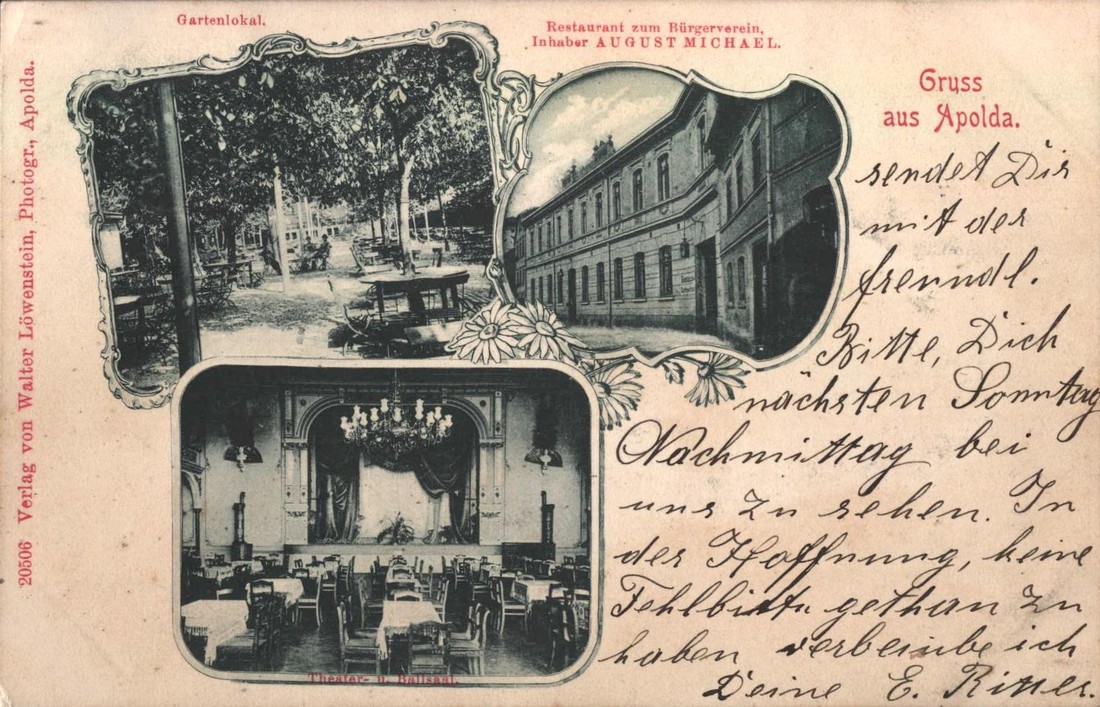 Gartenlokal.
Restaurant zum Bürgerverein,
Inhaber AUGUST MICHAEL.
Gruss
aus Apolda.
sendet Dir
mit der
freundl.
Bitte, Dich
nächsten Sonntag
Nachmittag bei
uns zu sehen. In
der Hoffnung, keine
Fehlbitte gethan zu
haben verbleibe ich
Deine E. Ritter.
Theater- u. Ballsaal.
20506 Verlag von Walter Löwenstein, Photogr., Apolda.